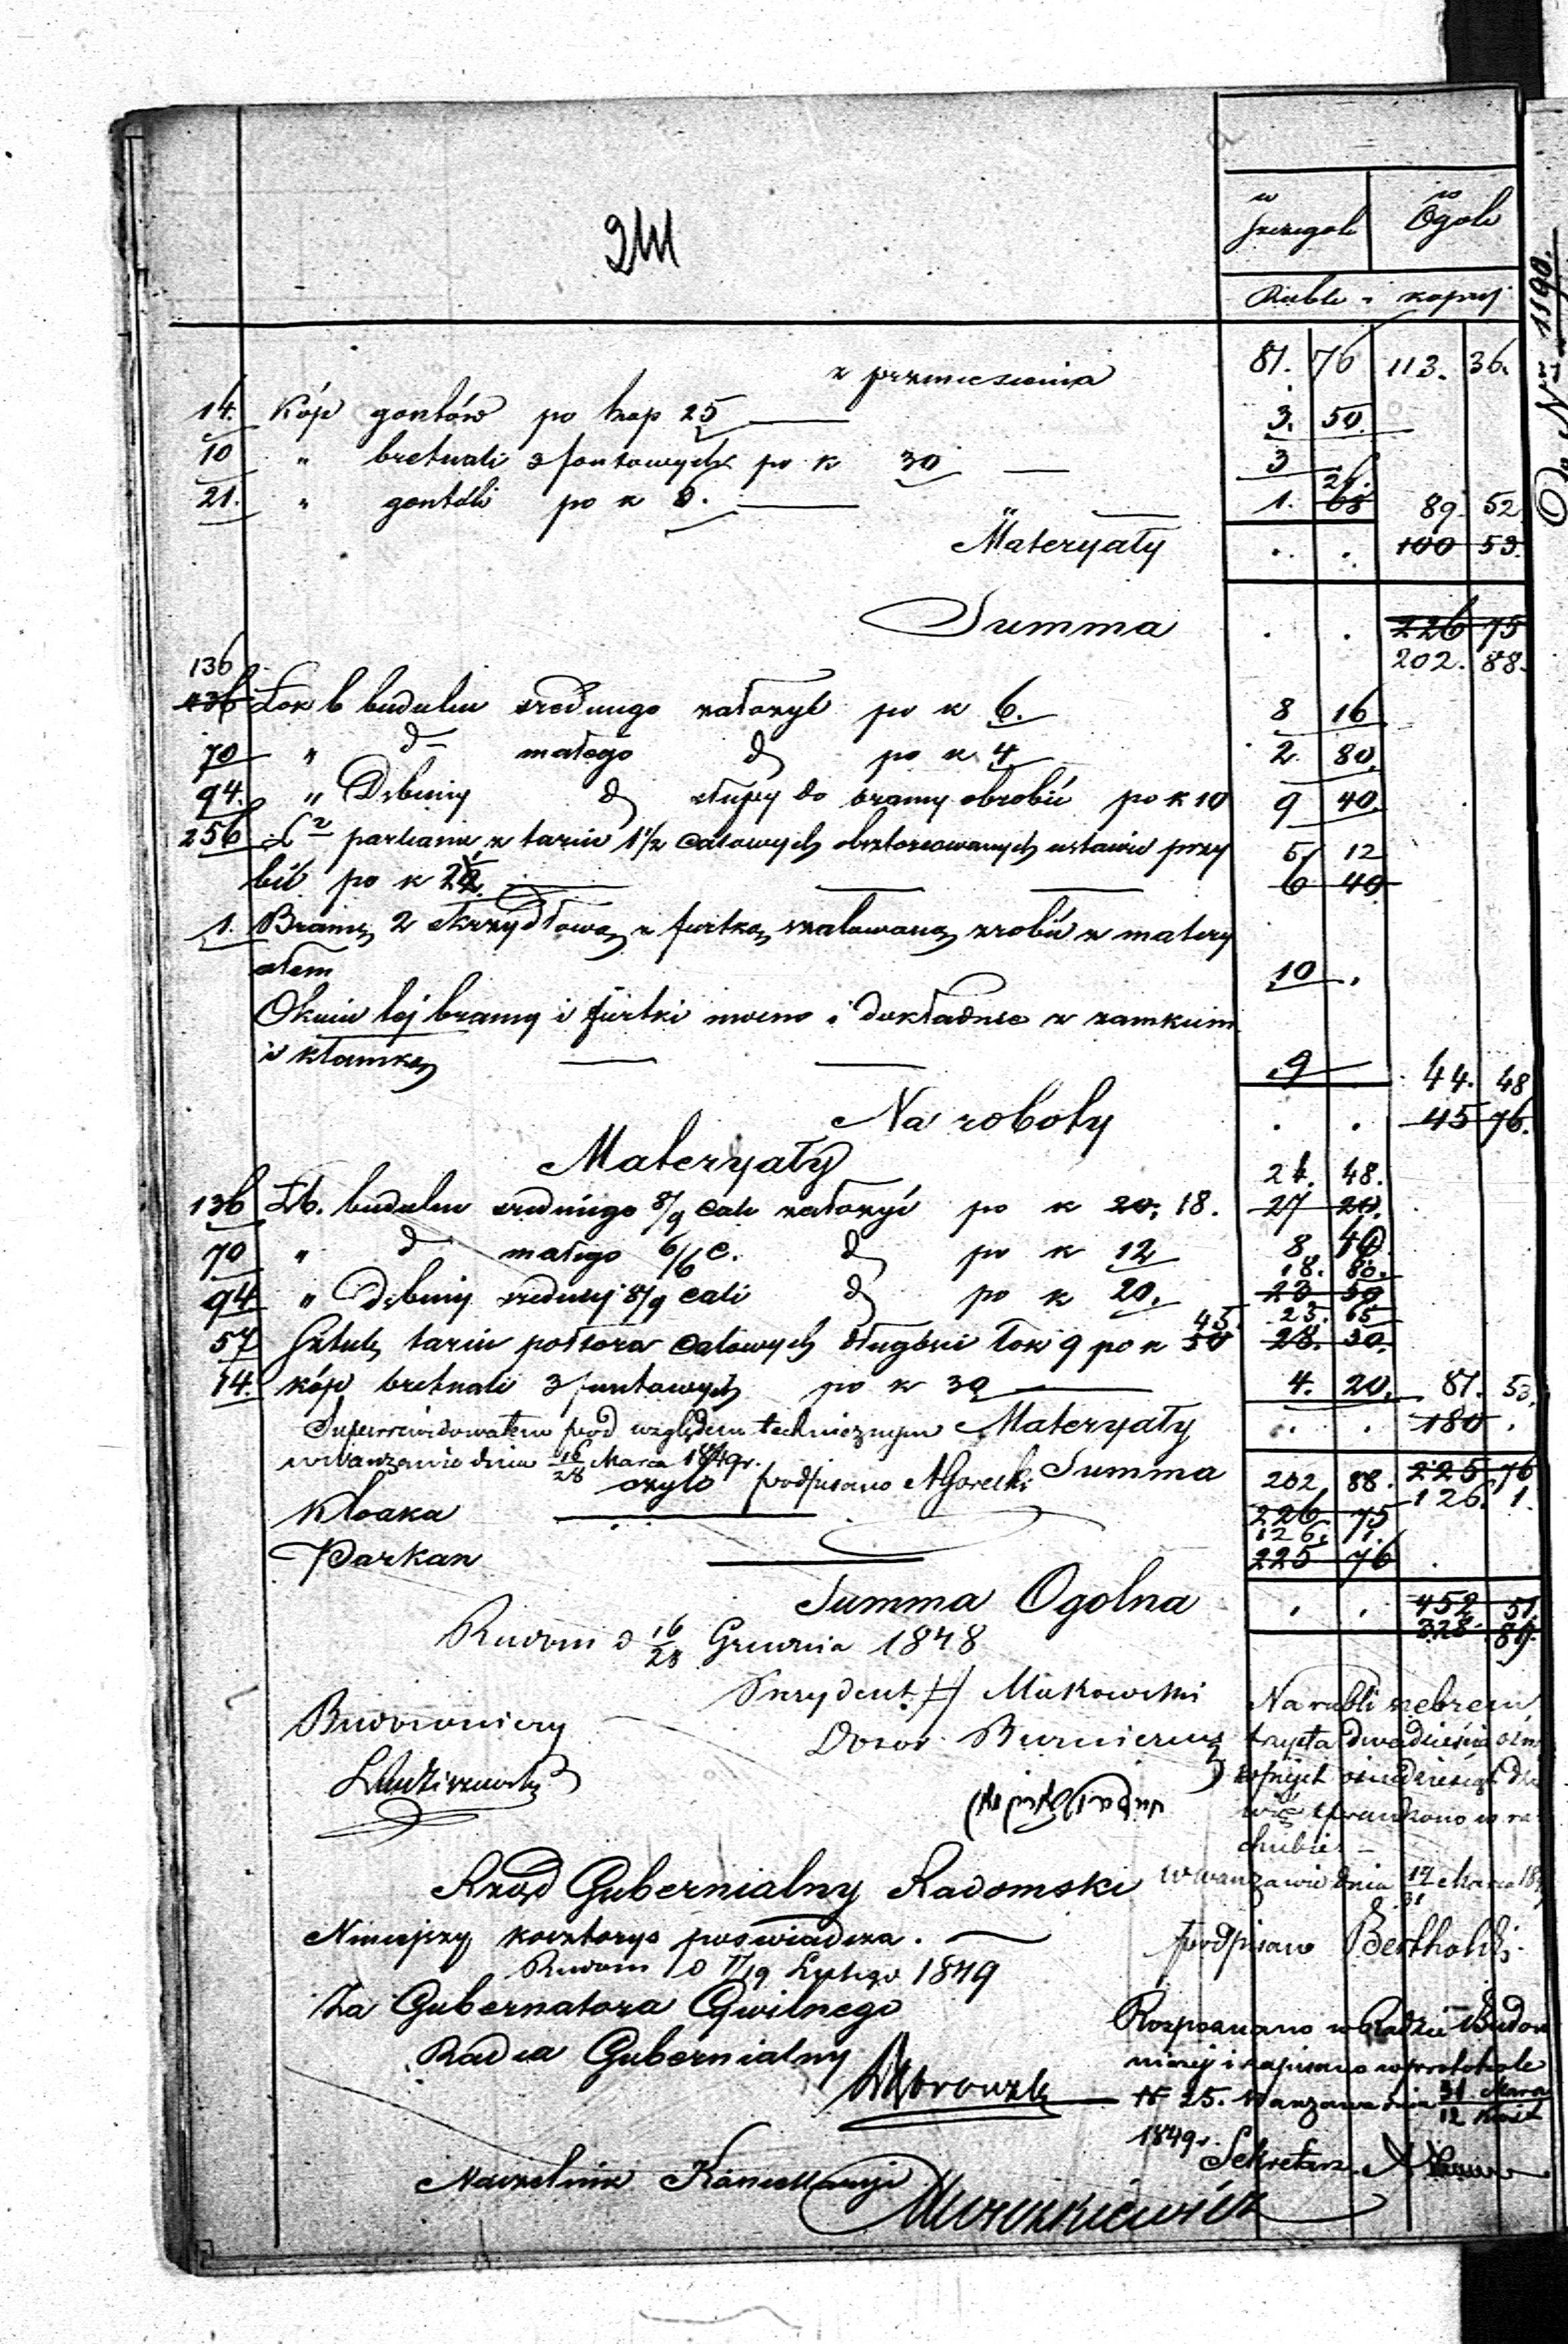 241
w Szczegole w Ogole
Ruble i kopiej
z przeniesienia 81. 76 113. 36.
14. Kóp gontów po kop 25 3. 50.
10 " bretnali 3 funtowych po k 30 3
21. " gontali po k 6. 1. 26. 89. 52
Materyały . . 100 53.
Summa . . 226 75
202. 88.
136
136 Łok b budulcu średniego założyć po k 6. 8 16
70 " d małego d po k 4 2. 80.
94. " Dębiny d słupy do bramy obrobić po k 10 9 40.
256 Ł² parkanu z tarcic 1½ calowych obsztorcowanych ustawić przy 5. 12
bić po k 2 6 40
1. Bramę 2 skrzydłową z furtką szalowaną zrobić z matery
ałem 10 .
Okucie tej bramy i furtki mocno i dokładnie z zamkiem
i klamką 9 44. 48
Na roboty . . 45 76.
Materyały 24. 48.
136 Łb. budulcu średniego 8/9 cali założyć po k 20, 18. 27 20.
70 " d małego 6/6 c. d po k 12 8. 40
18. 80.
94 " Dębiny średniej 8/9 cali d po k 20. 23 50
45. 23. 65
57 Sztuk tarcic półtora calowych długości łok 9 po k 50 28. 50.
14. kóp bretnali 3 funtowych po k 30 4. 20. 81. 53.
Superrewidowałem pod względem technicznym Materyały . . 180 .
w Warszawie dnia 16/28 Marca 1849 r.
podpisano AGorecki Summa 202 88. 225 76
126. 1.
Kloaka 226. 75
126. 1.
Parkan 225 76
Summa Ogolna . . 452 51.
328. 89.
Radom d 16/28 Grudnia 1848
Prezydent Makowski
Budowniczy
Dozor Burniczny
Na rubli srebrem
trzysta dwadzieścia ośm
kopijek ośmdziesiąt dzie
więć sprawdzono w ra
chubie –
w Warszawie dnia 19/31 Marca 184
podpisano Bertholdi
Rząd Gubernialny Radomski
Niniejszy kosztorys poświadcza.
Radom d 7/19 Lutego 1849
Za Gubernatora Cywilnego
Radca Gubernialny
Rozpoznano w Radzie Budow
niczej i zapisano w protokole
N 25. Warszawa dnia 31 Marca/12 Kwiet
1849 r.
Sekretarz
Naczelnik Kancellaryi
Nr 1190.